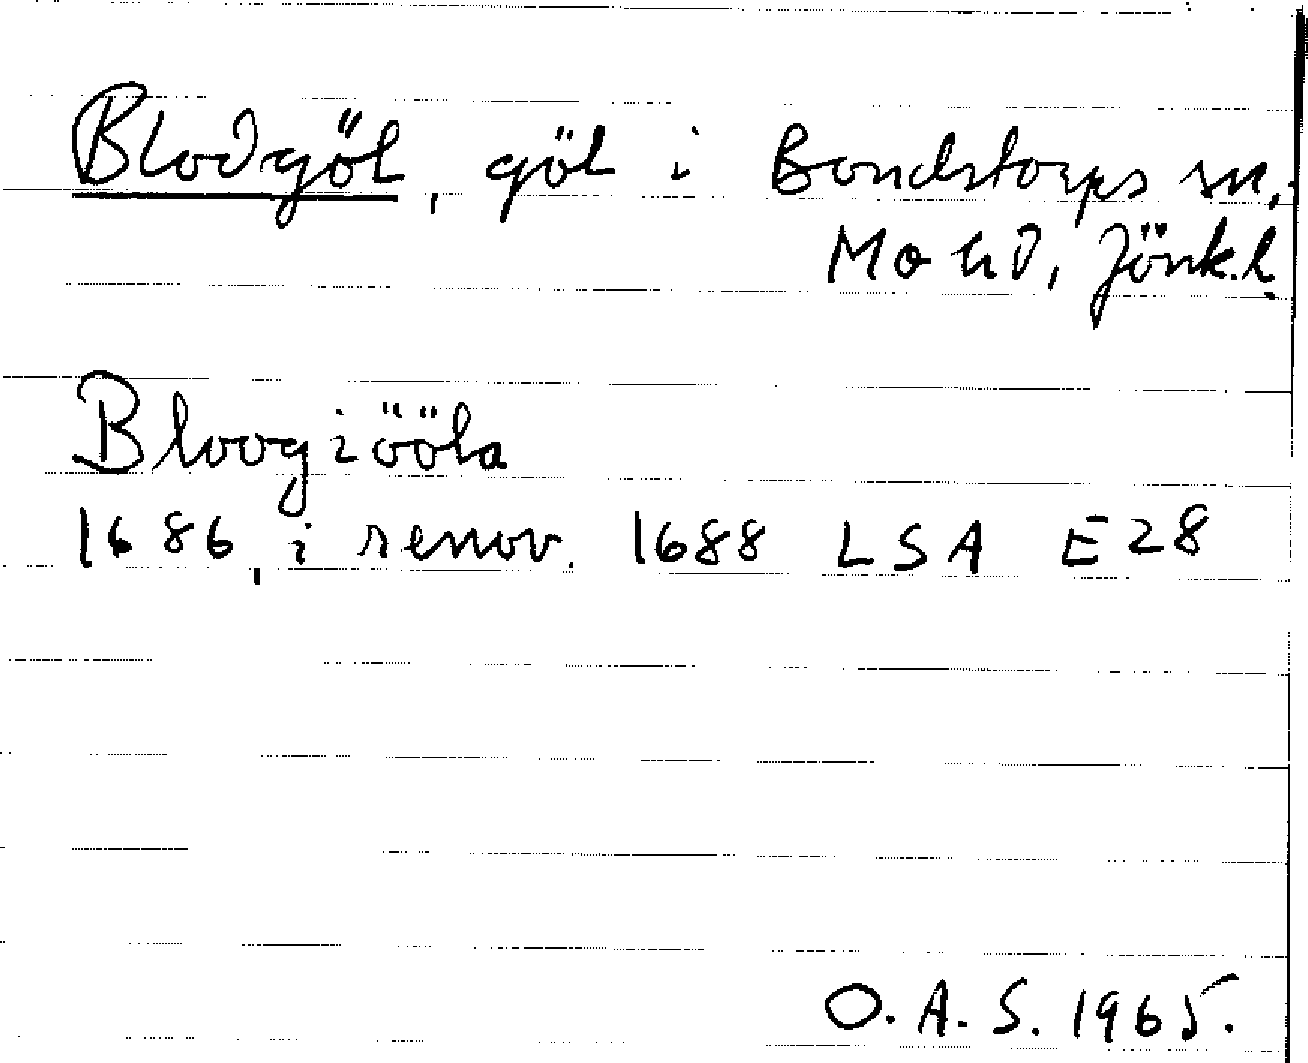 Blodgöl, göl i Bondstorps sn,
Mo hd, Jönk.l.
Bloogiööla
1686, i renov. 1688 LSA E28
O.A.S. 1965.